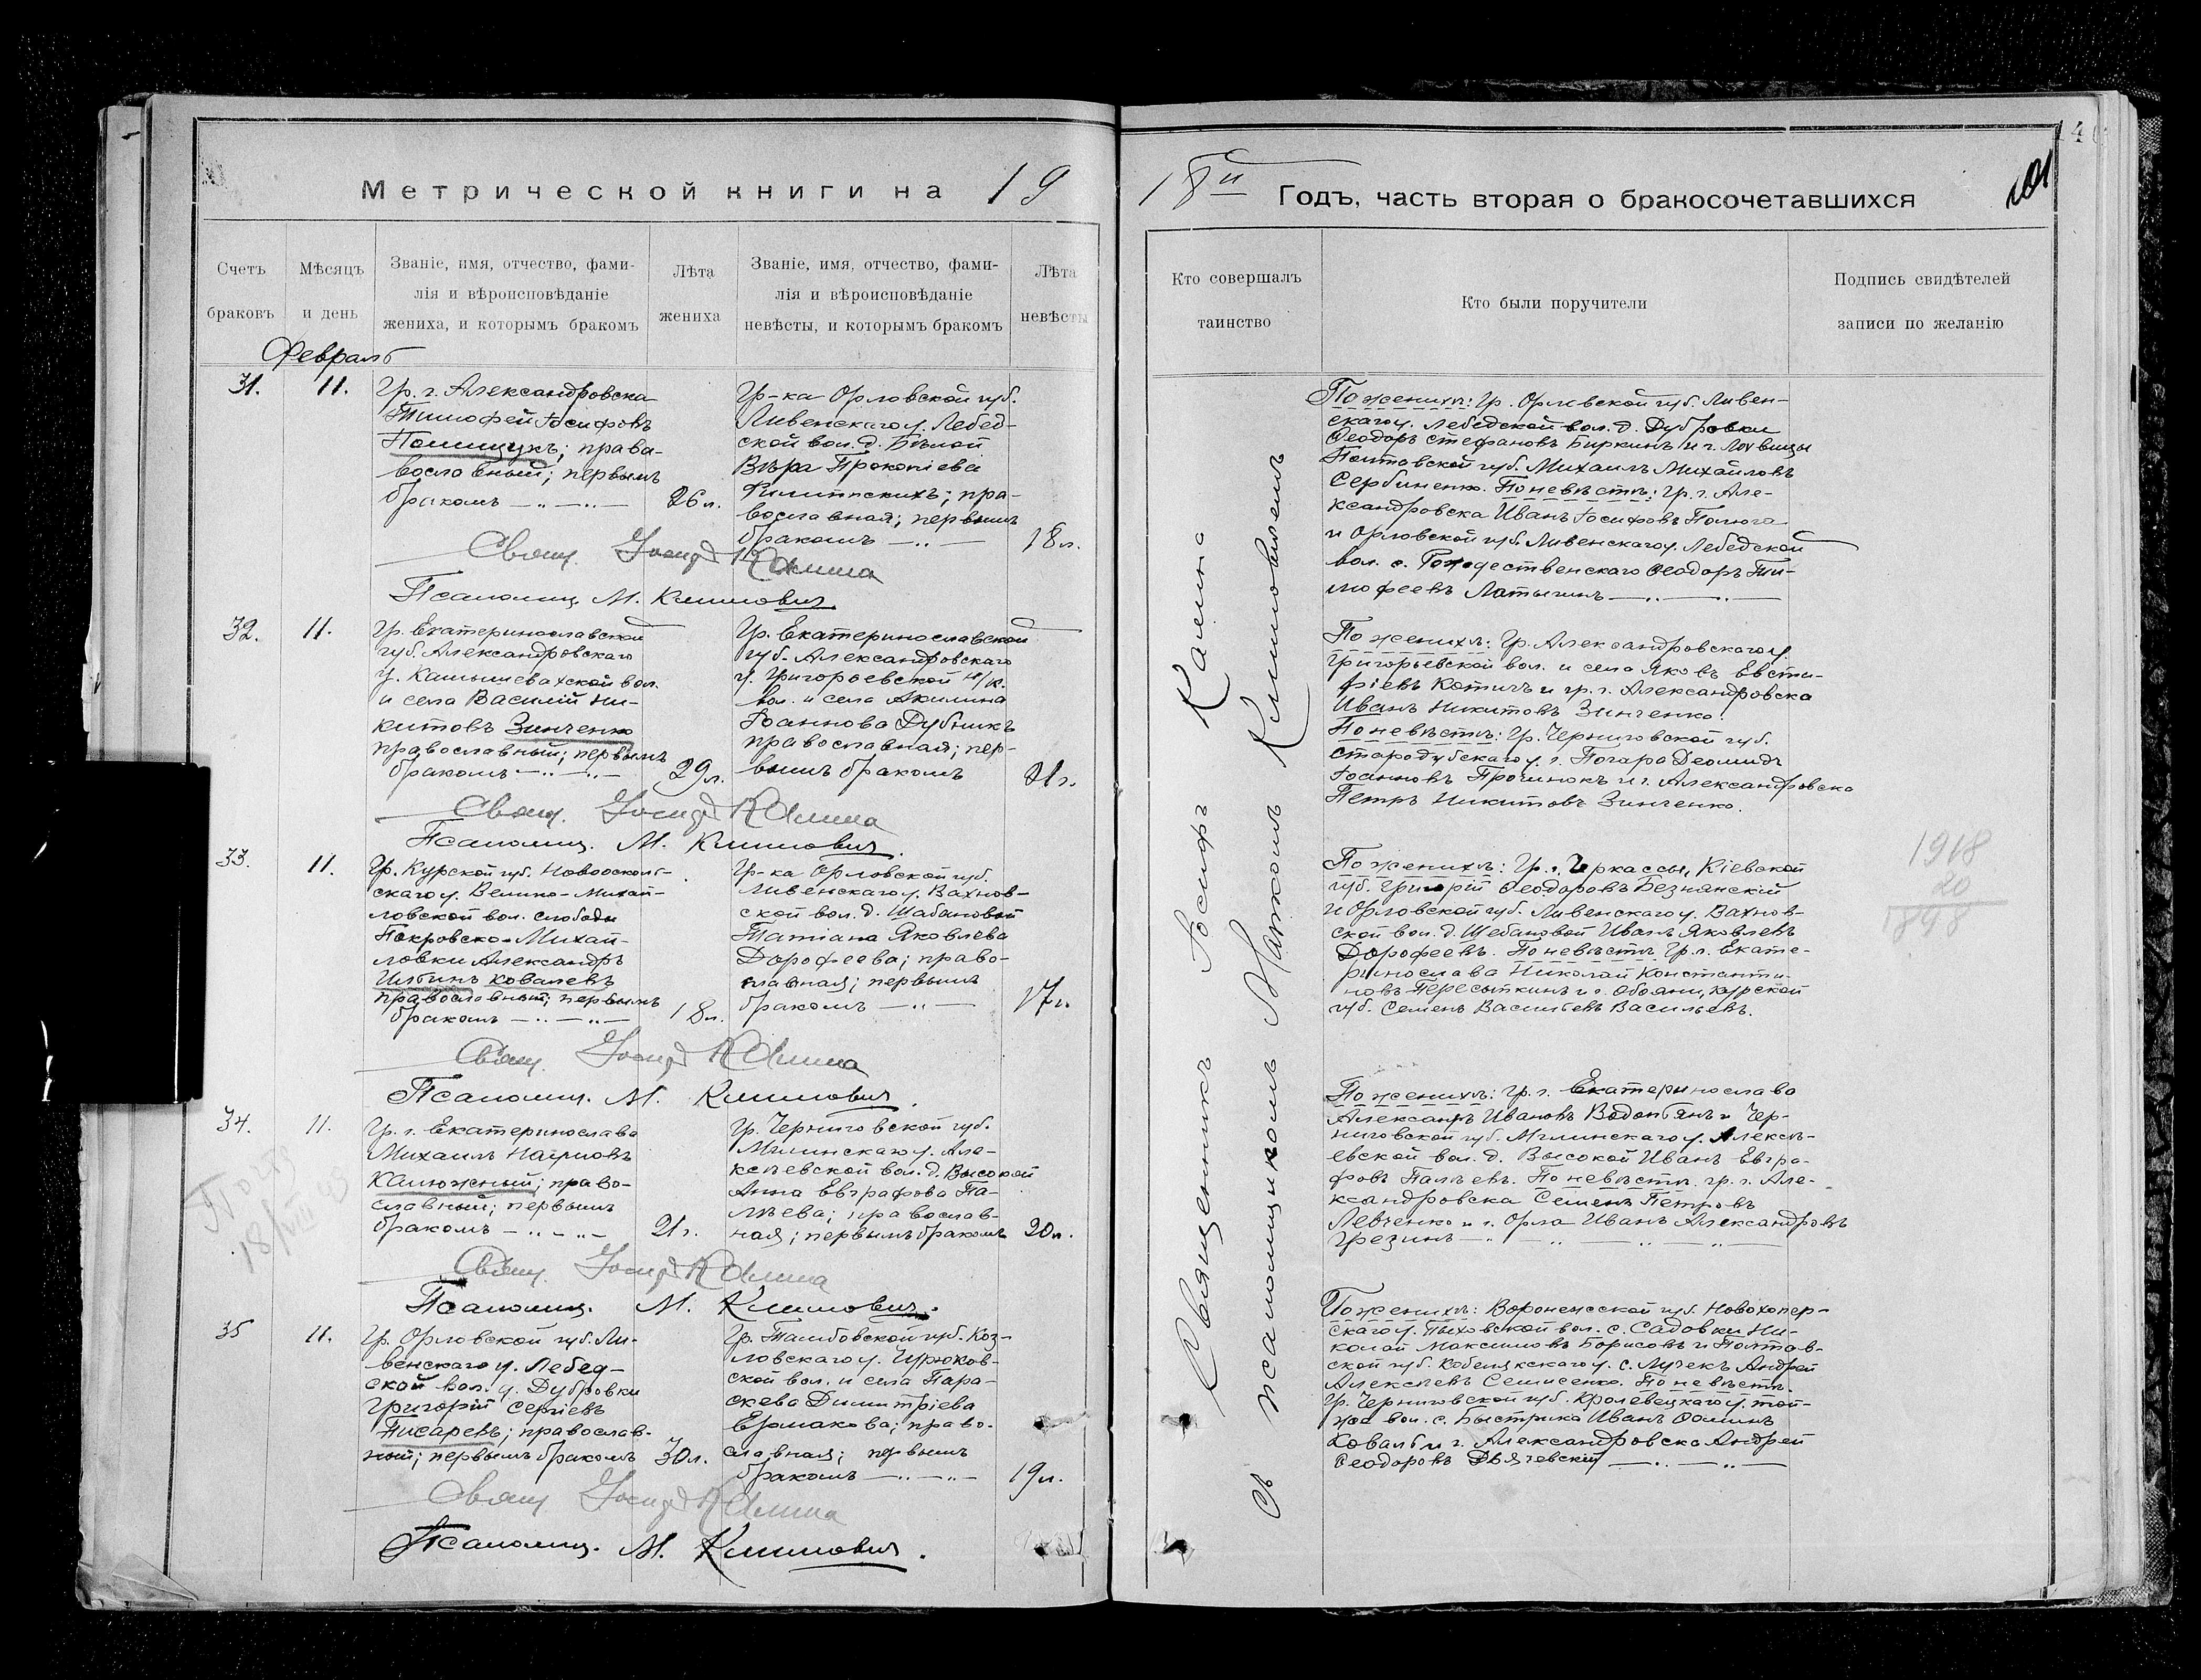 Метрической книги на 19
18й Годъ, часть вторая о бракосочетавшихся
101
Счетъ браковъ
Мѣсяцъ и день
Званіе, имя, отчество, фами-
лія и вѣроисповѣданіе
жениха, и которымъ бракомъ
Лѣта жениха
Званіе, имя, отчество, фами-
лія и вѣроисповѣданіе
невѣсты, и которымъ бракомъ
Лѣта невѣсты
Кто совершалъ
таинство
Кто были поручители
Подпись свидѣтелей
записи по желанію
Февраль
31.
11.
Гр. г. Александровска
Тимофей Іосифовъ
Полищукъ; права-
вославный; первымъ
бракомъ
26 л.
Гр-ка Орловской губ.
Ливенскаго у. Лебед-
ской вол. д. Бѣлой
Вѣра Прокопіева
Филипскихъ; пра-
вославная; первымъ
бракомъ
18 л.
Свящ. Іосифъ Калина
Псаломщ. М. Климович
По женихѣ: Гр. Орловской губ. Ливен-
скаго у. Лебедской вол. д. Дубровки
Ѳеодоръ Стефановъ Биркинъ и г. Лохвицы
Полтавской губ. Михаилъ Михайловъ
Сербиненко. По невѣстѣ: Гр. г. Але-
ксандровска Иванъ Іосифовъ Полюга
и Орловской губ. Ливенскаго у. Лебедской
вол. с. Рождественскаго Ѳеодоръ Ти-
мофеевъ Латыгинъ
32.
11.
Гр. Екатеринославской
губ. Александровскаго
у. Камышевахской вол.
и села Василій Ни-
китовъ Зинченко
православный; первымъ
бракомъ
29 л.
Гр. Екатеринославской
губ. Александровскаго
у. Григорьевской н/к.
вол. и села Акилина
Іоаннова Дубникъ
православная; пер-
вымъ бракомъ
21 г.
Свящ. Іосифъ Калина
Псаломщ. М. Климович.
По женихѣ: Гр. Александровскаго у.
Григорьевской вол. и села Яковъ Евста-
фіевъ Котичъ и гр. г. Александровска
Иванъ Никитовъ Зинченко.
По невѣстѣ: Гр. Черниговской губ.
Стародубскаго у. г. Погара Деомидъ
Іоанновъ Прошнокъ и г. Александровска
Петръ Никитовъ Зинченко.
33.
11.
Гр. Курской губ. Новооскольс-
скаго у. Велико-Михай-
ловской вол. слободы
Покровско-Михай-
ловки Александръ
Ильинъ Ковалевъ
православный; первымъ
бракомъ
18 л.
Гр-ка Орловской губ.
Ливенскаго у. Вахнов-
ской вол. д. Шабановой
Татіана Яковлева
Дорофеева; право-
славная; первымъ
бракомъ
17 г.
Свящ. Іосифъ Калина
Псаломщ. М. Климович.
По женихѣ: Гр. г. Черкассы, Кіевской
губ. Григорій Ѳеодоровъ Безнянскій
и Орловской губ. Ливенскаго у. Вахнов-
ской вол. д. Шебановой Иванъ Яковлевъ
Дорофеевъ. По невѣстѣ Гр. г. Екате-
ринослава Николай Константи-
новъ Пересыпкинъ и г. Обояни, Курской
губ. Семенъ Васильевъ Васильевъ.
1918
20
1898
34.
11.
Гр. г. Екатеринослава
Михаилъ Наумовъ
Калюжный; право-
славный; первымъ
бракомъ
21 г.
Гр. Черниговской губ.
Мглинскаго у. Але-
ксѣевской вол. д. Высокой
Анна Евграфова Па-
лѣева; православ-
ная; первымъ бракомъ
20 л.
Свящ. Іосифъ Калина
Псаломщ. М. Климович.
По женихѣ: Гр. г. Екатеринослава
Александръ Ивановъ Водопьянъ и Чер-
ниговской губ. Мглинскаго у. Алексѣ-
евской вол. д. Высокой Иванъ Евгра-
фовъ Палѣевъ. По невѣстѣ гр. г. Але-
ксандровска Семенъ Петровъ
Левченко и г. Орла Иванъ Александровъ
Грезинъ
35
11.
Гр. Орловской губ. Ли-
венскаго у. Лебед-
ской вол. д. Дубровки
Григорій Сергіевъ
Писаревъ; православ-
ный; первымъ бракомъ
30 л.
Гр. Тамбовской губ. Коз-
ловскаго у. Чурюков-
ской вол. и села Пара-
скева Димитріева
Ермакова; право-
славная; первымъ
бракомъ
19 л.
Свящ. Іосифъ Калина
Псаломщ. М. Климович.
По женихѣ: Воронежской губ. Новохопер-
скаго у. Пыховской вол. с. Садовки Ни-
колай Максимовъ Борисовъ и Полтав-
ской губ. Кобелякскаго у. с. Лучекъ Андрей
Алексѣевъ Семисенко. По невѣстѣ.
Гр. Черниговской губ. Кролевецкаго у. той-
же вол. с. Быстрика Иванъ Ѳоминъ
Коваль и г. Александровска Андрей
Ѳеодоровъ Дьячевскій
Священникъ Іосифъ Калина
съ псаломщикомъ Маркомъ Климовичемъ